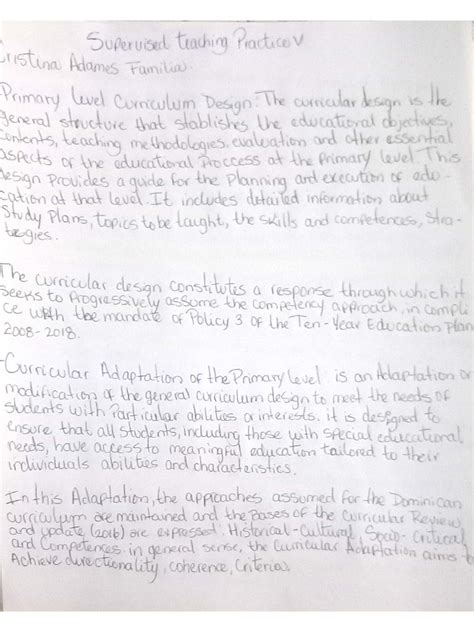 Supervised teaching Practice V
Cristina Adames Familia.
Primary Level Curriculum Design: The curricular design is the
general structure that stablishes the educational objectives,
contents, teaching methodologies, evaluation and other essential
aspects of the educational Proccess at the Primary level. This
design Provides a guide for the Planning and execution of edu-
cation at that level. It includes detailed information about
Study Plans, topics to be taught, the skills and competences, stra-
tegies.
The curricular design constitutes a response through which it
seeks to Progressively assume the competency approach, in compli
ce with the mandate of Policy 3 of the Ten-Year Education Plan
2008-2018.
-Curricular Adaptation of the Primary Level is an Adaptation or
modification of the general curriculum design to meet the needs of
students with Particular abilites or interests. it is designed to
ensure that all students, including those with special educational
needs, have access to meaningful education tailored to their
individuals abilities and characteristics.
In this Adaptation, the approaches assumed for the Dominican
curriculum are maintained and the Bases of the Curricular Review
and update (2016) are expressed: Historical-Cultural, Socio-Critical
and Competences. in general sense, the Curricular Adaptation aimes to
Achieve directionality, coherence, Criteria.